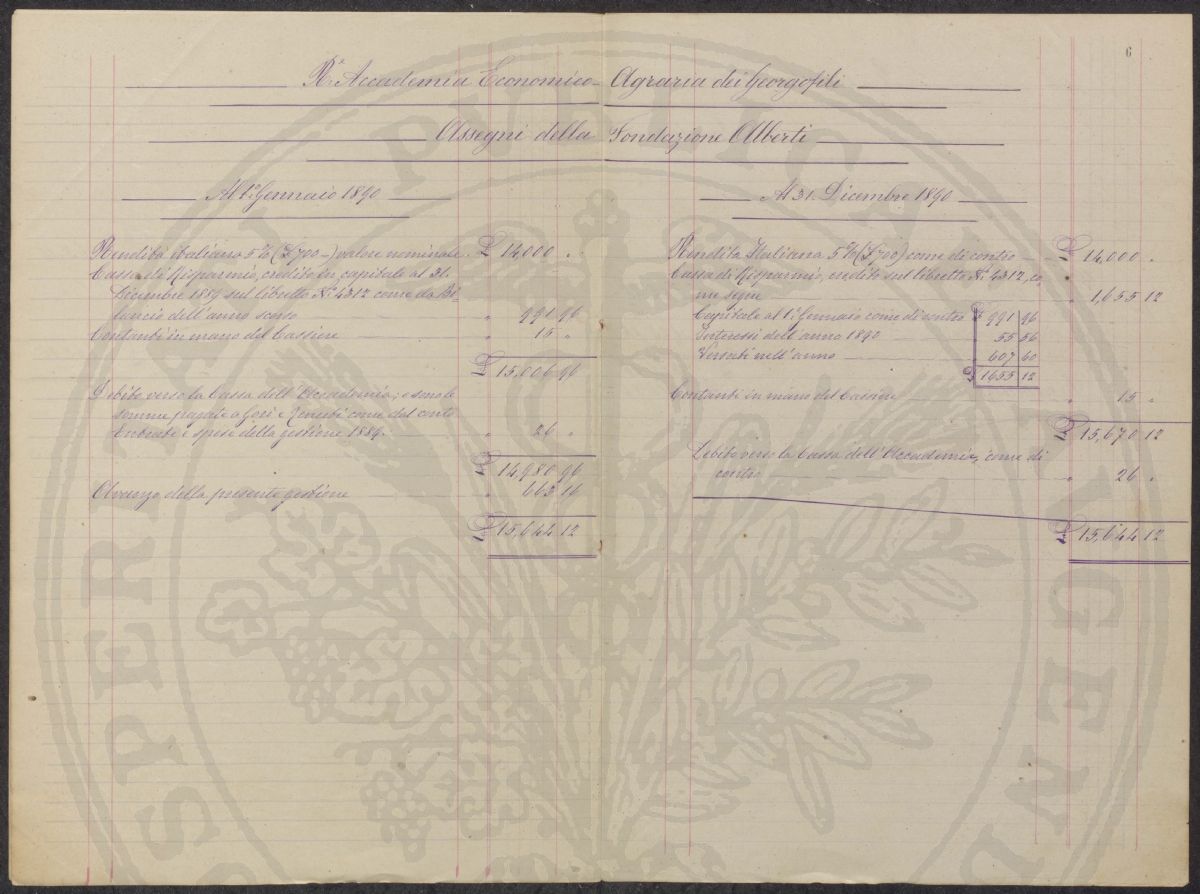 6
R.ᵃ Accademia Economico-Agraria dei Georgofili
Assegni della Fondazione Alberti
Al 1.º Gennaio 1890
Rendita italiana 5% (£700 —) valore nominale. £ 14,000 "
Cassa di Risparmio credito in capitale al 31.
Dicembre 1889 sul libretto N.º 4312 come da Bi-
lancio dell'anno scorso " 991 96
Contanti in mano del Cassiere " 15 "
£ 15,006 96
Debito verso la Cassa dell'Accademia, e sono le
somme pagate a Gori e come dal conto
Entrate e spese della gestione 1889. " 26 "
£ 14,980 96
Avanzo della presente gestione " 663 16
£ 15,644 12
Al 31. Dicembre 1890
Rendita Italiana 5% (£700) come di contro £ 14,000 "
Cassa di Risparmio, credito sul libretto N.º 4312, co-
me segue " 1,655 12
Capitale al 1.º Gennaio come di contro £ 991 96
Interessi dell'anno 1890 55 56
Versati nell'anno 607 60
£ 1655 12
Contanti in mano del Cassiere " 15 "
£ 15,670 12
Debito verso la Cassa dell'Accademia, come di
contro " 26 "
£ 15,644 12